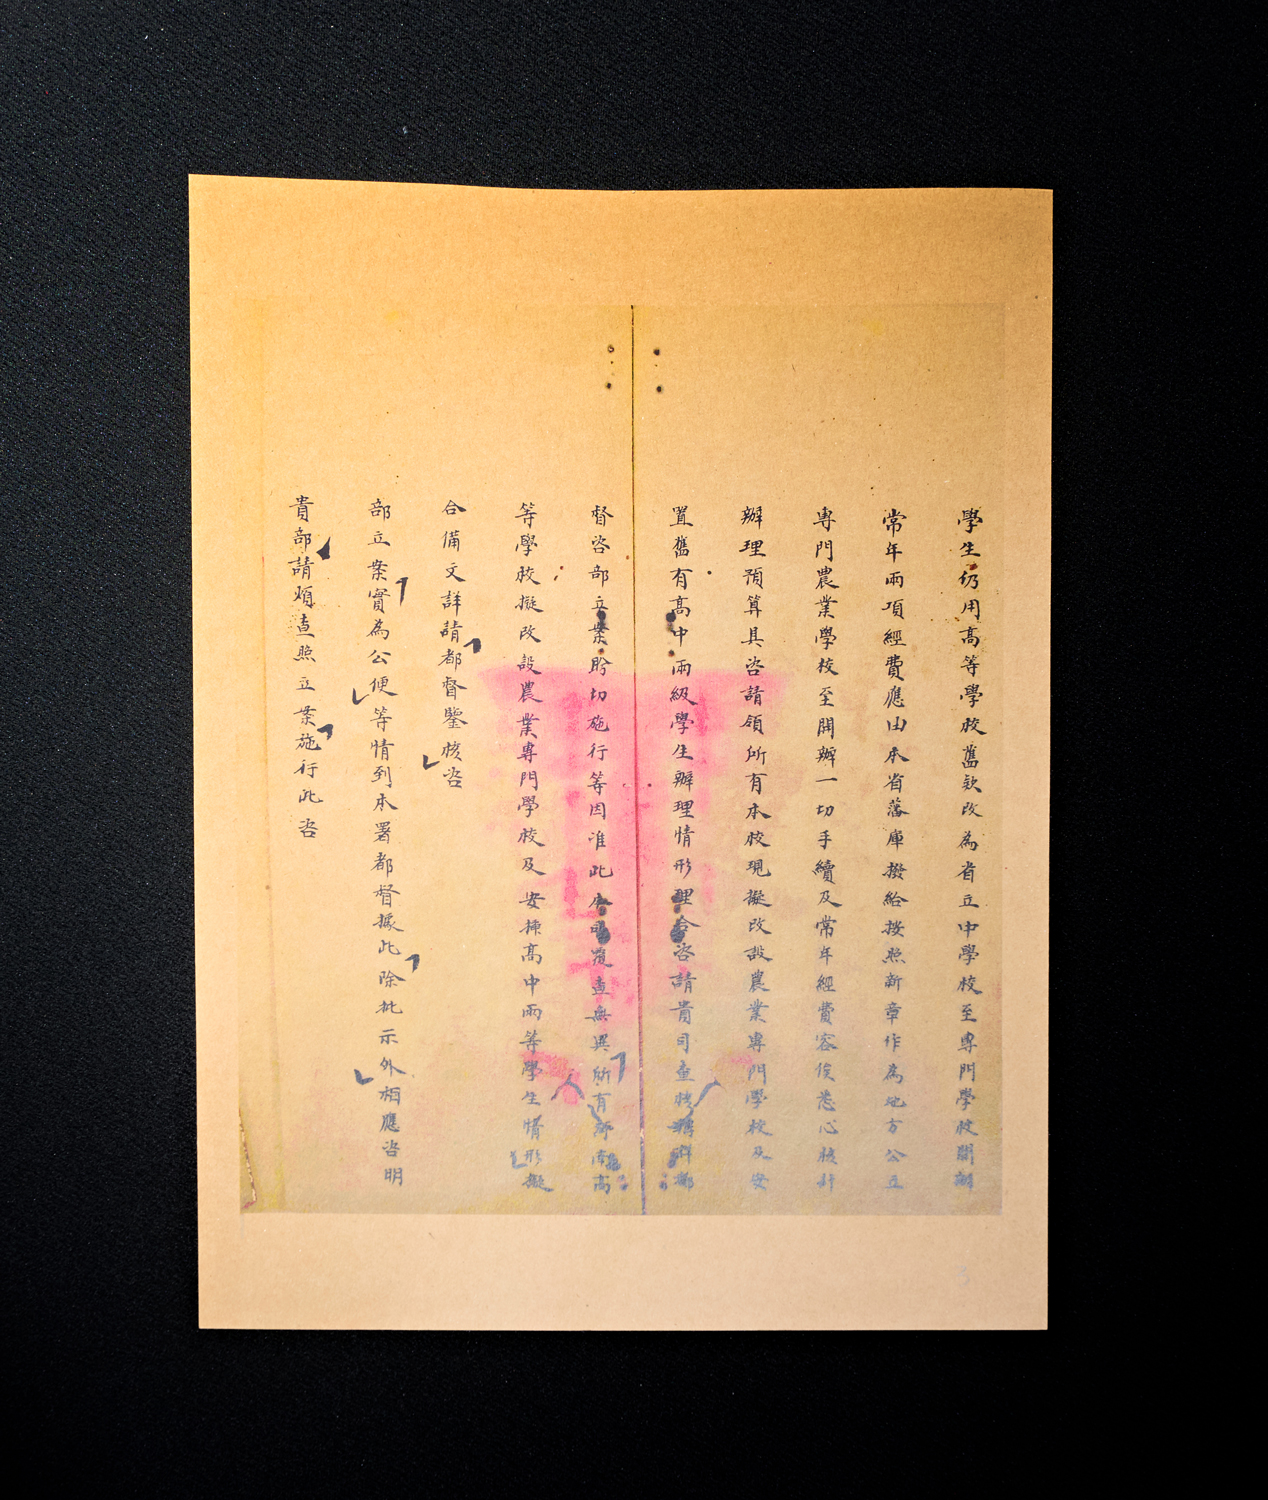 學生仍用高等學校舊欵改為省立中學校至專門學校開辦
常年兩項經費應由本省藩庫撥給按照新章作為地方公立
專門農業學校至開辦一切手續及常年經費容俟悉心核計
辦理預算具咨請領所有本校現擬改設農業專門學校及安
置舊有高中兩級學生辦理情形理合咨請貴司查核轉詳都
督咨部立案盼切施行等因准此本司覆查無異所有濟南高
等學校擬改設農業專門學校及安揀高中兩等學生情形擬
合備文詳請都督鑒核咨
部立案實為公便等情到本署都督據此除批示外相應咨明
貴部請煩查照立案施行此咨